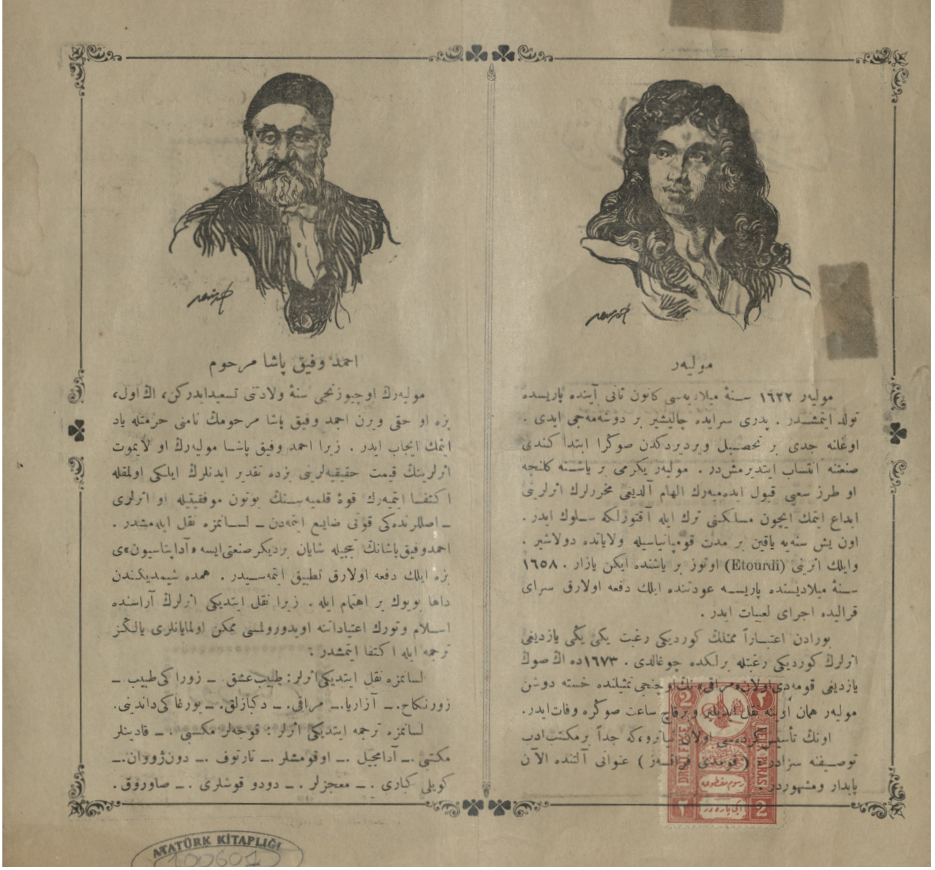 مولیەر
مولیەر ١٦٢٢ سنهٔ میلادیه‌سی کانون ثانی آینده پاریسده
تولد ایتمشدر . پدری سرایده چالیشیر بر دوشه‌مه‌جی ایدی .
اوغلنه جدی بر تحصیل ویردیردکدن صوکرا ابتدا کندی
صنعتنه انتساب ایتدیرمش‌در . مولیەر یکرمی بر یاشنه کلنجه
او طرز سعیی قبول ایده‌میه‌رك الهام آلدیغی محررلرك اثرلرینی
ابداع ایتمك ایچون مسلکنی ترك ایله آقتورلکه سلوك ایدر .
اون بش سنه‌یه یاقین بر مدت قومپانیاسیله ولایاتده دولاشیر .
وایلك اثرینی (Etourdi) اوتوز بر یاشنده ایکن یازار . ١٦٥٨
سنهٔ میلادیسنده پاریسه عودتنده ایلك دفعه اولارق سرای
قرالیده اجرای لعبیات ایدر .
بورادن اعتباراً ممثلك کوردیکی رغبت یکی یکی یازدیغی
اثرلرك کوردیکی رغبتله برلکده چوغالدی . ١٦٧٣ده اك صوك
یازدیغی قومه‌دی اولان «مراقی» نك اوچنجی تمثیلنده خسته دوشن
مولیەر همان أوینه نقل ایدیلیر و برقاچ ساعت صوکره وفات ایدر.
اونك تأسیس کرده‌سی اولان تیاترو، که جداً بر مکتب ادب
توصیفنه سزادر ( قومدی فرانسەز ) عنوانی آلتنده الآن
پایدار ومشهوردر .
احمد وفیق پاشا مرحوم
مولیەرك اوچیوزنجی سنهٔ ولادتنی تسعید ایدرکن، اك اول،
بزه او حقی ویرن احمد وفیق پاشا مرحومك نامنی حرمتله یاد
ایتمك ایجاب ایدر . زیرا احمد وفیق پاشا مولیەرك او لایموت
اثرلرینك قیمت حقیقیه‌لرینی بزده تقدیر ایدنلرك ایلکی اولمقله
اکتفا ایتمیه‌رك قوهٔ قلمیه‌سنك بوتون موفقیتیله او اثرلری
ـ اصللرنده‌کی قوتی ضایع ایتمه‌دن ـ لسانمزه نقل ایله‌مشدر .
احمدوفیق پاشانك تبجیله شایان بر دیکر صنعتی ایسه «آداپتاسیون»ی
بزه ایلك دفعه اولارق تطبیق ایتمه‌سیدر . همده شیمدیکندن
داها بویوك بر اهتمام ایله . زیرا نقل ایتدیکی اثرلرك آراسنده
اسلام وتورك اعتیاداتنه اویدورولمسی ممکن اولمایانلری یالکز
ترجمه ایله اکتفا ایتمشدر :
لسانمزه نقل ایتدیکی اثرلر : طبیب عشق ـ زوراکی طبیب ـ
زورنکاح ـ آزاریا ـ مراقی ـ دکبازلق ـ یورغاکی داندینی .
لسانمزه ترجمه ایتدیکی اثرلر : قوجه‌لر مکتبی ـ قادینلر
مکتبی ـ آدامجیل ـ اوقومشلر ـ تارتوف ـ دون ژووان ـ
کوپلی کباری ـ معجزلر ـ دودو قوشلری ـ صاوروق .
DROIT FIXE
IKI PARAS
2
2
ATATÜRK KİTAPLIĞI